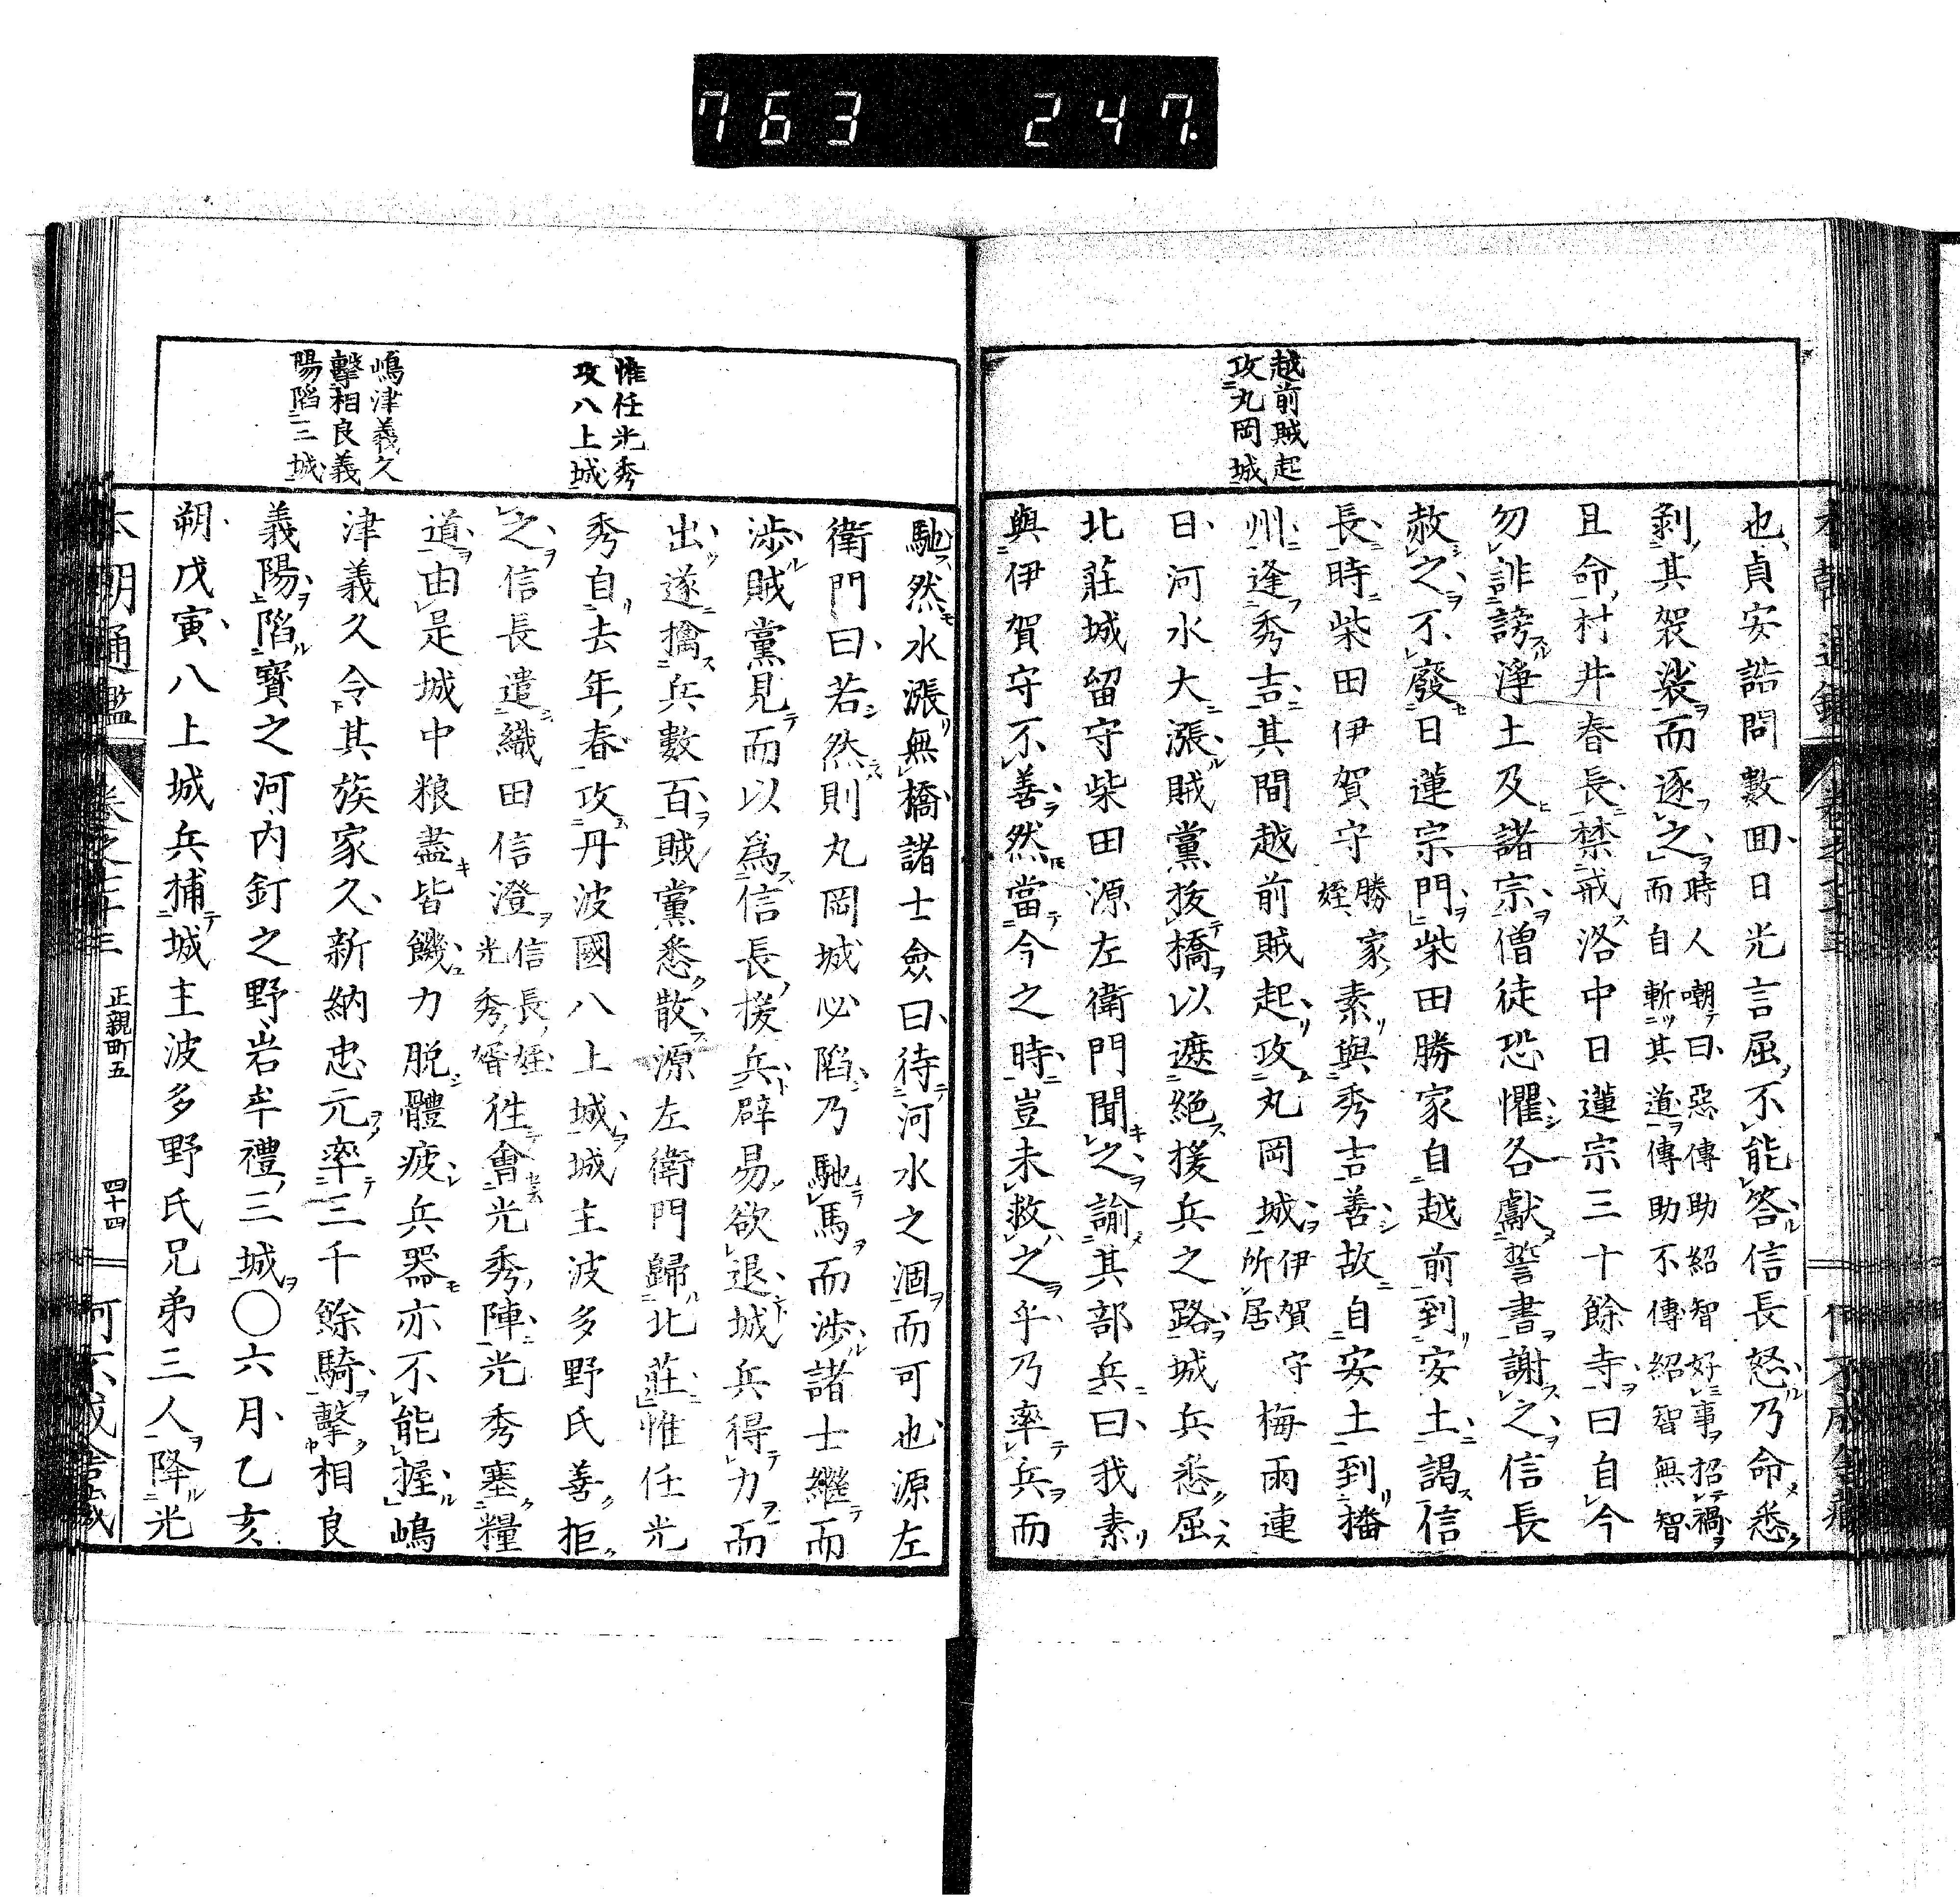 763 247.
越前賊起
攻丸岡城
也貞安詰問數囬日光言屈不能答信長怒乃命悉
剥其袈裟而逐之時人嘲曰惡傳助紹智好事招禍
而自斬其道傳助不傳紹智無智
且命村井春長禁戒洛中日蓮宗三十餘寺曰自今
勿誹謗淨土及諸宗僧徒恐懼各獻誓書謝之信長
赦之不廢日蓮宗門柴田勝家自越前到安土謁信
長時柴田伊賀守勝家
姪素與秀吉善故自安土到播
州逢秀吉其間越前賊起攻丸岡城伊賀守
所居梅雨連
日河水大漲賊黨拔橋以遮絶援兵之路城兵悉屈
北莊城留守柴田源左衛門聞之諭其部兵曰我素
與伊賀守不善然當今之時豈未救之乎乃率兵而
惟任光秀
攻八上城
嶋津義久
擊相良義
陽陷三城
馳然水漲無橋諸士僉曰待河水之涸而可也源左
衛門曰若然則丸岡城必陷乃馳馬而渉諸士繼而
渉賊黨見而以爲信長援兵辟易欲退城兵得力而
出遂擒兵數百賊黨悉散源左衛門歸北莊惟任光
秀自去年春攻丹波國八上城城主波多野氏善拒
之信長遣織田信澄信長姪
光秀婿徃會光秀陣光秀塞糧
道由是城中粮盡皆饑力脱體疲兵器亦不能握嶋
津義久令其族家久新納忠元率三千餘騎擊相良
義陽陷寳之河内釘之野岩牟禮三城〇六月乙亥
朔戊寅八上城兵捕城主波多野氏兄弟三人降光
本朝通鑑 卷之七十三 正親町五 四十四